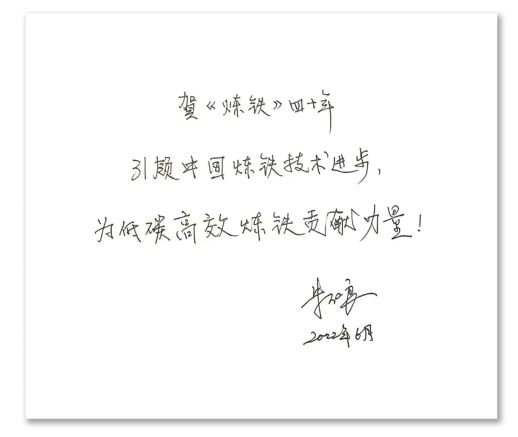 贺《炼铁》四十年
引领中国炼铁技术进步，
为低碳高效炼铁贡献力量！
2022年6月